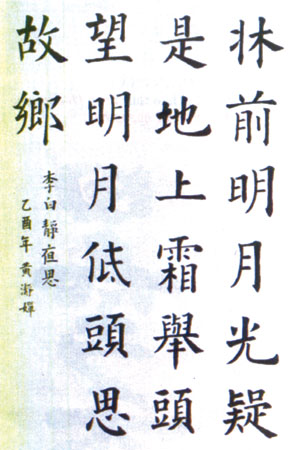 牀前明月光疑
是地上霜舉頭
望明月低頭思
故鄉
李白靜夜思
乙酉年 黃